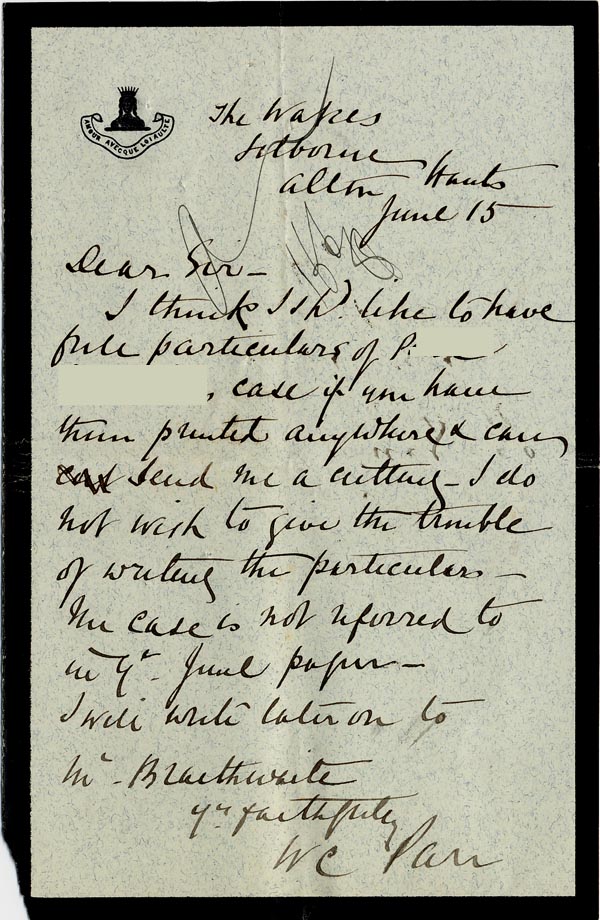 AMOUR AVECQUE LOIAULTE
The Wakes
Selborne
Alton Hants
June 15
Dear Sir -
I think I shd. like to have
full particulars of P.
, case if you have
them printed anywhere & can
send me a cutting - I do
not wish to give the trouble
of writing the particulars -
The case is not referred to
in yr. June paper -
I will write later on to
Mr. Braithwaite
Yrs faithfully
W C Parr